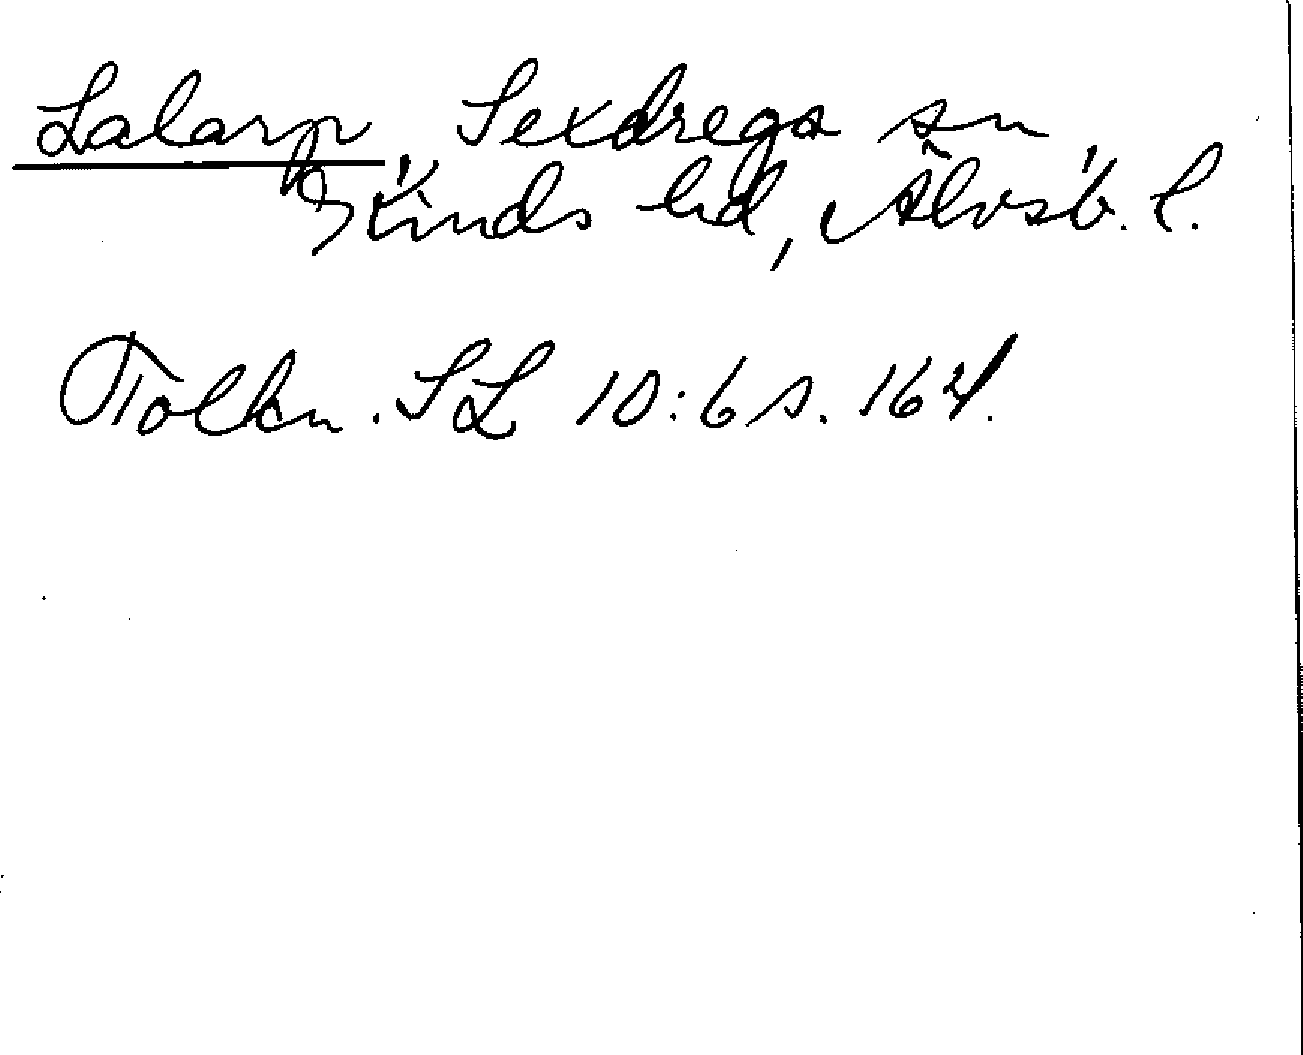 Lalarp, Sexdrega sn
Kinds hd, Älvsb. l.
Tolkn. SL 10:6 s. 164.